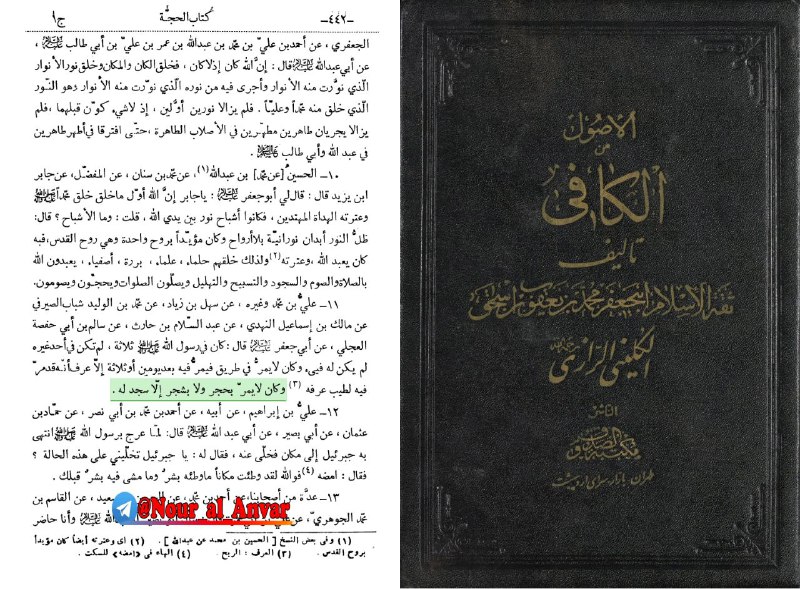 -٤٤٢- كتاب الحجّة ج١
الجعفري ، عن أحمد بن عليّ بن محمّد بن عبدالله بن عمر بن عليّ بن أبي طالب عليه السلام ،
عن أبي عبدالله عليه السلام قال : إنَّ الله كان إذلا كان ، فخلق الكان والمكان وخلق نور الأنوار
الّذي نوّرت منه الأنوار وأجرى فيه من نوره الّذي نوّرت منه الأنوار وهو النّور
الّذي خلق منه محمّداً وعليّاً . فلم يزالا نورين أوَّلين ، إذ لاشيء كوّن قبلهما ، فلم
يزالا يجريان طاهرين مطهّرين في الأصلاب الطاهرة ، حتّى افترقا في أطهر طاهرين
في عبد الله وأبي طالب عليهما السلام .
١٠ـ الحسين [عن محمّد] بن عبدالله(١)، عن محمّد بن سنان ، عن المفضّل، عن جابر
ابن يزيد قال : قال لي أبوجعفر عليه السلام : ياجابر إنَّ الله أوَّل ماخلق خلق محمّداً
وعترته الهداة المهتدين ، فكانوا أشباح نور بين يدي الله ، قلت : وما الأشباح ؟ قال:
ظلُّ النور أبدان نورانيّة بلاأرواح وكان مؤيّداً بروح واحدة وهي روح القدس، فبه
كان يعبد الله ، وعترته(٢)ولذلك خلقهم حلماء ، علماء ، بررة ، أصفياء ، يعبدون الله
بالصلاة والصوم والسجود والتسبيح والتهليل ويصلّون الصلوات ويحجّون ويصومون.
١١ـ عليُّ بن محمّد وغيره ، عن سهل بن زياد ، عن محمّد بن الوليد شباب الصيرفي
عن مالك بن إسماعيل النهدي ، عن عبد السّلام بن حارث ، عن سالم بن أبي حفصة
العجلي ، عن أبي جعفر عليه السلام قال : كان في رسول الله ثلاثة ، لم تكن في أحد غيره
لم يكن له فيء وكان لايمرُّ في طريق فيمرُّ فيه بعديومين أوثلاثة إلّا عرف أنّه قد مرّ
فيه لطيب عرفه (٣) وكان لايمرّ بحجر ولا بشجر إلّا سجد له .
١٢ـ عليُّ بن إبراهيم ، عن أبيه ، عن أحمد بن محمّد بن أبي نصر ، عن حمّاد بن
عثمان ، عن أبي بصير ، عن أبي عبد الله عليه السلام قال: لمّا عرج برسول الله انتهى
به جبرئيل إلى مكان فخلّى عنه ، فقال له : يا جبرئيل تخلّيني على هذه الحالة ؟
فقال : امضه (٤) فوالله لقد وطئت مكاناً ماوطئه بشرٌ وما مشى فيه بشرٌ قبلك .
١٣ـ عدَّة من أصحابنا، عن أحمد بن محمّد، عن سعيد، عن القاسم بن
محمّد الجوهريّ، عن عليّ عبدالله عليه السلام وأنا حاضر
@Nour al Anvar
(١) وفى بعض النسخ [ الحسين بن محمد عن عبدالله ] . (٢) اى وعترته أيضاً كان مؤيداً
بروح القدس . (٣) العرف : الريح . (٤) الهاء فى «امضه» للسكت .
الأصول
من
الكافي
تأليف
ثقة الإسلام أبي جعفر محمد بن يعقوب بن إسحق
الكليني الرازي
الناشر
مكتبة الصدوق
طهران - بازار سراى اردبهشت